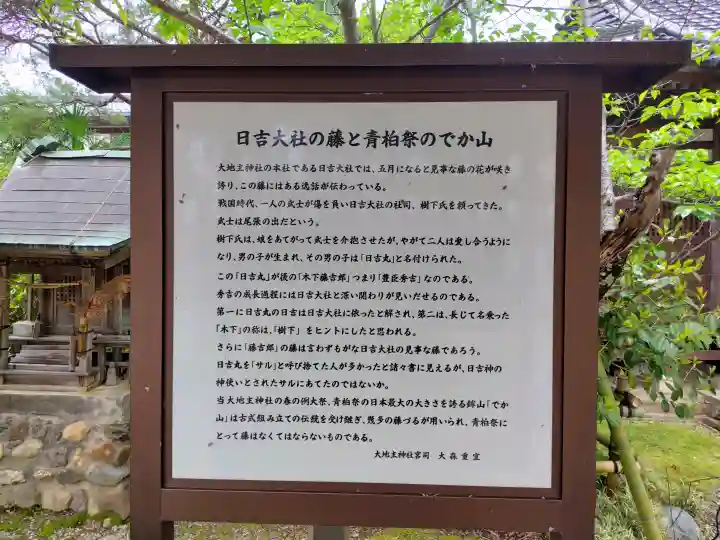 日吉大社の藤と青柏祭のでか山
大地主神社の本社である日吉大社では、五月になると見事な藤の花が咲き
誇り、この藤にはある逸話が伝わっている。
戦国時代、一人の武士が傷を負い日吉大社の社司、樹下氏を頼ってきた。
武士は尾張の出だという。
樹下氏は、娘をあてがって武士を介抱させたが、やがて二人は愛し合うように
なり、男の子が生まれ、その男の子は「日吉丸」と名付けられた。
この「日吉丸」が後の「木下藤吉郎」つまり「豊臣秀吉」なのである。
秀吉の成長過程には日吉大社と深い関わりが見いだせるのである。
第一に日吉丸の日吉は日吉大社に依ったと解され、第二は、長じて名乗った
「木下」の称は、「樹下」をヒントにしたと思われる。
さらに「藤吉郎」の藤は言わずもがな日吉大社の見事な藤であろう。
日吉丸を「サル」と呼び捨てた人が多かったと諸々書に見えるが、日吉神の
神使いとされたサルにあてたのではないか。
当大地主神社の春の例大祭、青柏祭の日本最大の大きさを誇る鉾山「でか
山」は古式組み立ての伝統を受け継ぎ、幾多の藤づるが用いられ、青柏祭に
とって藤はなくてはならないものである。
大地主神社宮司 大森重宜